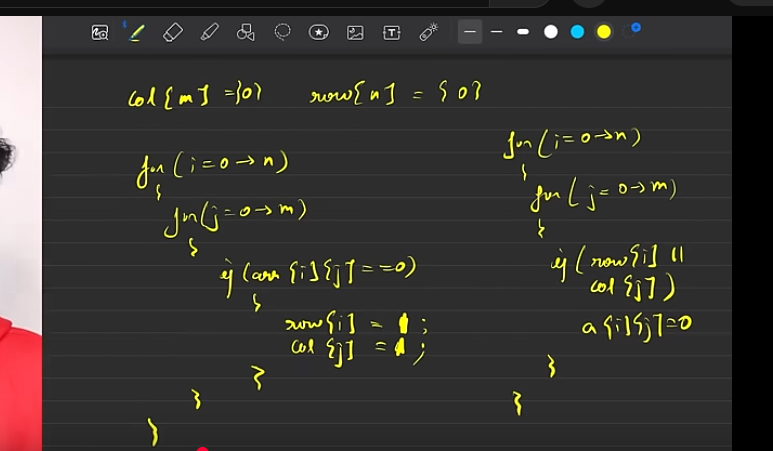 col[m] = {0} row[n] = {0}
for(i=0→n)
{
for(j=0→m)
{
if(arr[i][j]==0)
{
row[i] = 1;
col[j] = 1;
}
}
}
for(i=0→n)
{
for(j=0→m)
{
if(row[i] ||
col[j])
a[i][j]=0
}
}